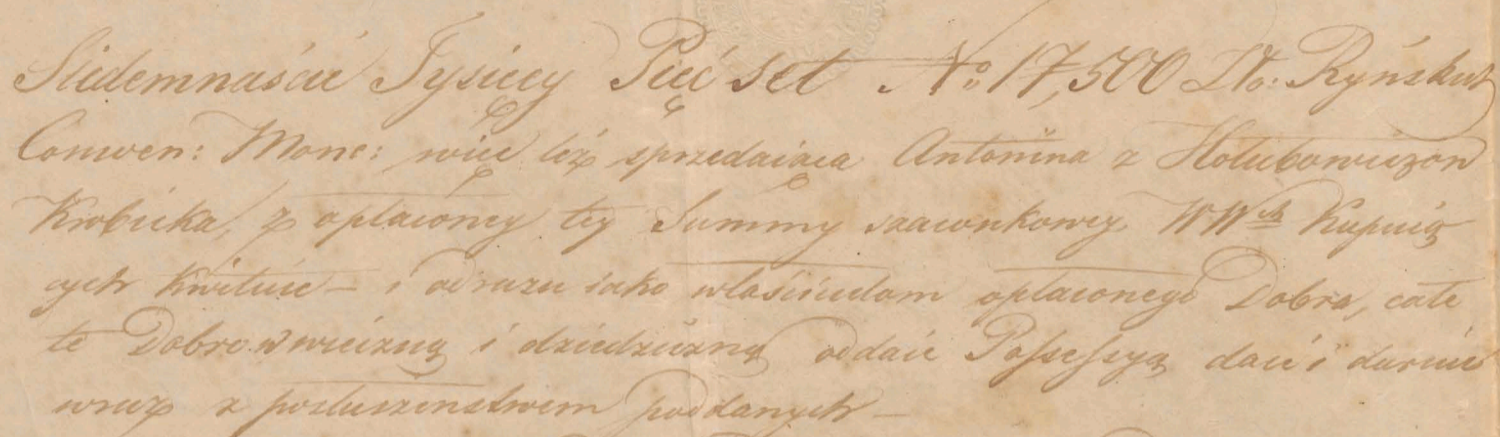 Siedemnaście Tysięcy Pięć set No 17,500 Zło: Ryńskich
Conwen: Mone: więc też sprzedaiąca Antonina z Hołubowiczow
Krobicka, z opłaconey tey Summy szacunkowey WWch Kupuią
cych kwituie – i odrazu iako właścicielom opłaconego Dobra, całe
te Dobro w wieczną i dziedziczną oddaie Possessyą daie i daruie
wraz z posłuszenstwem poddanych –